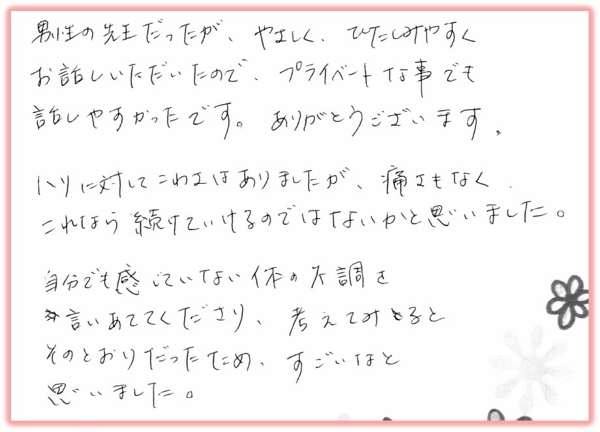 男性の先生だったが、やさしく、ひたしみやすく
お話しいただいたので、プライベートな事でも
話しやすかったです。ありがとうございます。
ハリに対してこわさはありましたが、痛さもなく、
これなら続けていけるのではないかと思いました。
自分でも感じていない体の不調を
言いあててくださり、考えてみると
そのとおりだったため、すごいなと
思いました。